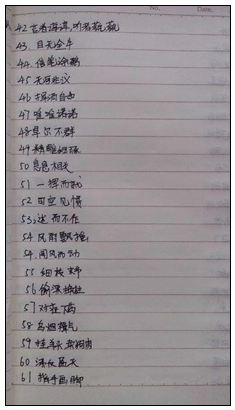 No. Date.
42 言者谆谆,听者藐藐
43. 目无全牛
44. 信笔涂鸦
45 无可非议
46 措词自如
47 唯唯诺诺
48 卓尔不群
49 精雕细琢
50 息息相关
51 一挥而就
52 司空见惯
53、述而不作
54 风雨飘摇
54. 闻风而动
55 细枝末节
56 偷梁换柱
57 对症下药
58 乌烟瘴气
59 挂羊头卖狗肉
60 满天
61 指手画脚